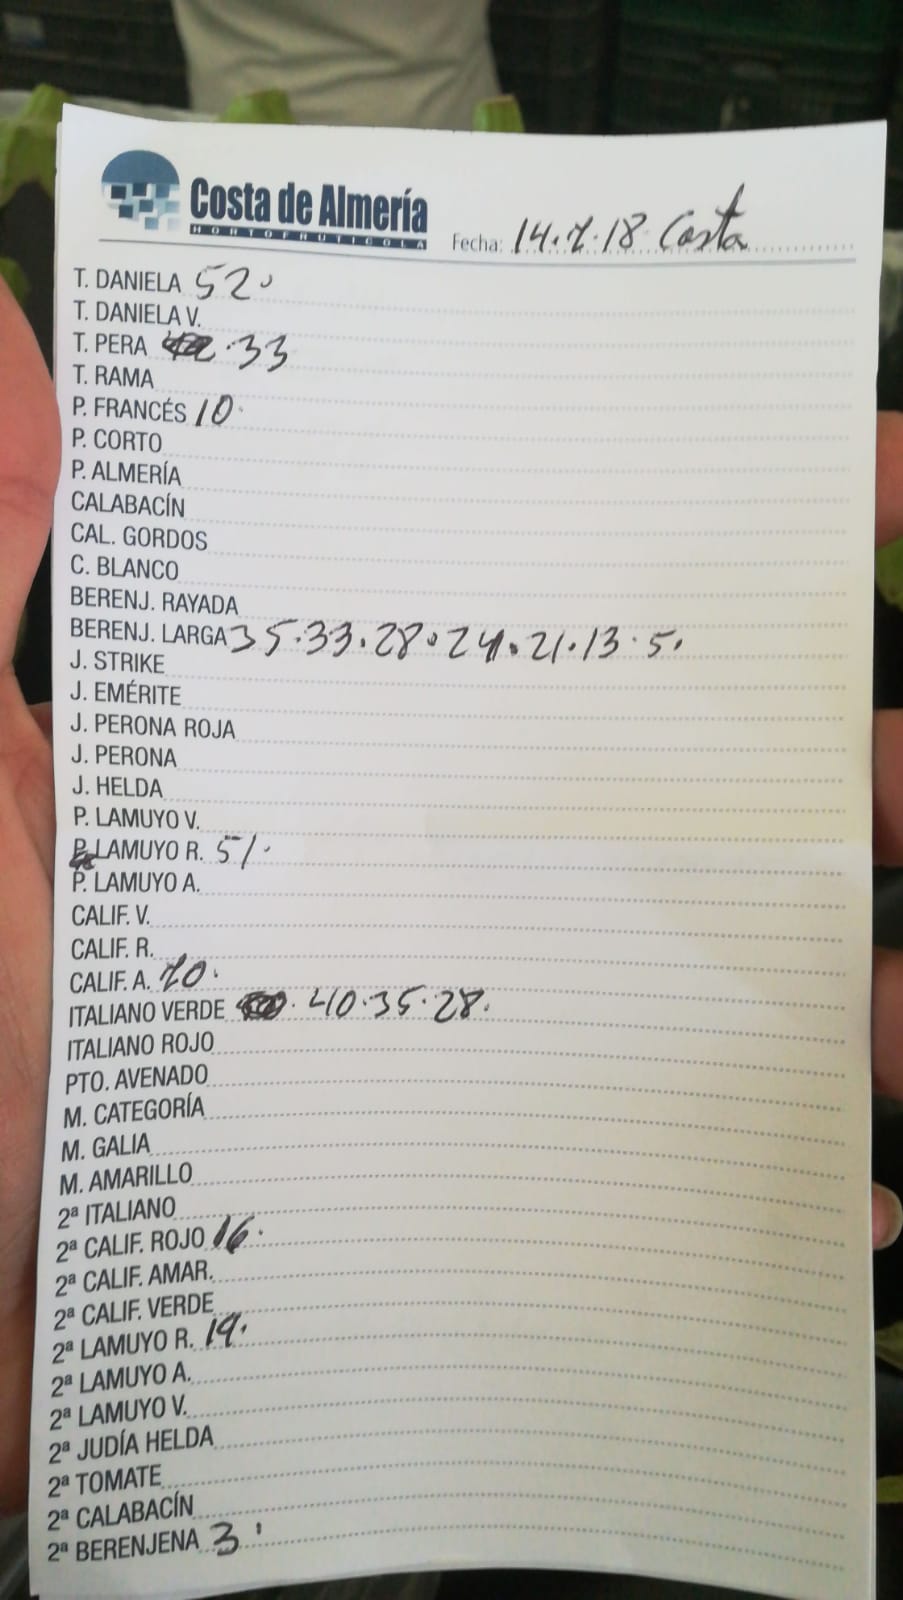 Costa de Almería
HORTOFRUTICOLA
Fecha: 14.7.18 Costa
T. DANIELA 52.
T. DANIELA V.
T. PERA .33
T. RAMA
P. FRANCÉS 10.
P. CORTO
P. ALMERÍA
CALABACÍN
CAL. GORDOS
C. BLANCO
BERENJ. RAYADA
BERENJ. LARGA 35.33.28.24.21.13.5.
J. STRIKE
J. EMÉRITE
J. PERONA ROJA
J. PERONA
J. HELDA
P. LAMUYO V.
P. LAMUYO R. 51.
P. LAMUYO A.
CALIF. V.
CALIF. R.
CALIF. A. 70.
ITALIANO VERDE . 40.35.28.
ITALIANO ROJO
PTO. AVENADO
M. CATEGORÍA
M. GALIA
M. AMARILLO
2ª ITALIANO
2ª CALIF. ROJO 16.
2ª CALIF. AMAR.
2ª CALIF. VERDE
2ª LAMUYO R. 19.
2ª LAMUYO A.
2ª LAMUYO V.
2ª JUDÍA HELDA
2ª TOMATE
2ª CALABACÍN
2ª BERENJENA 3.